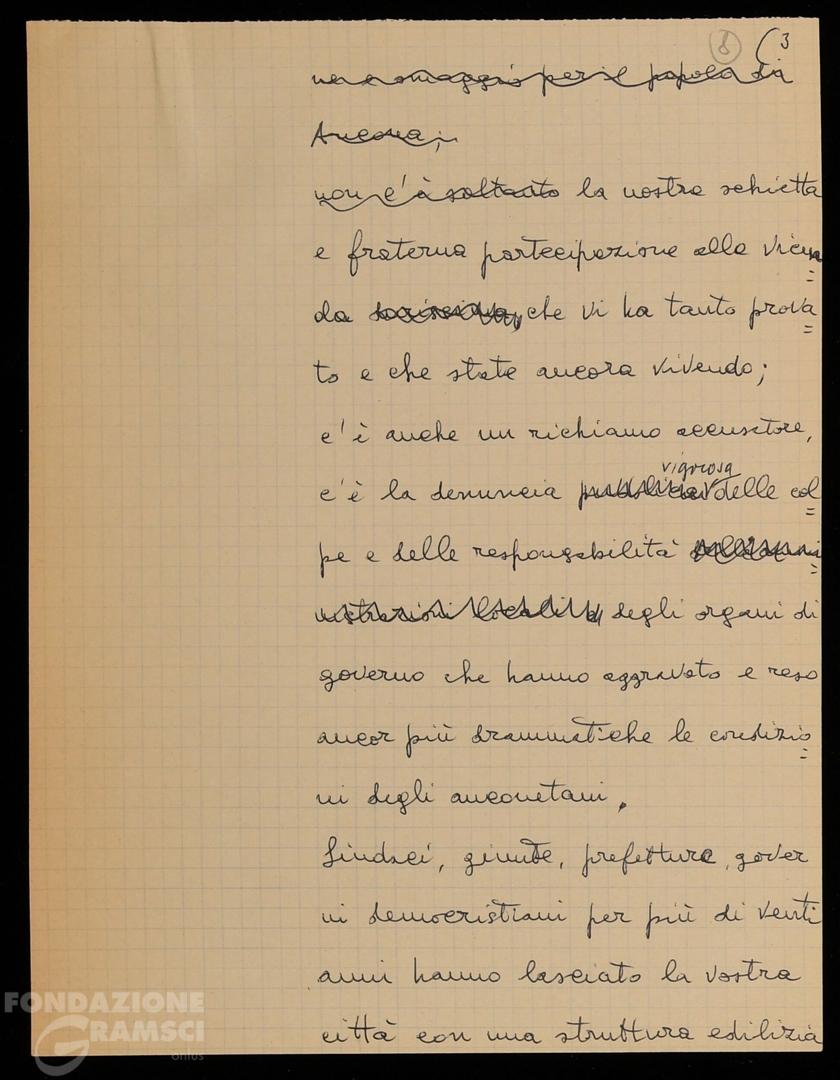 8 3
un omaggio per il popolo di
Ancona;
non c'è soltanto la nostra schietta
e fraterna partecipazione alla vicen
da che vi ha tanto prova
to e che state ancora vivendo;
c'è anche un richiamo accusatore,
vigorosa
c'è la denuncia pubblica delle col
pe e delle responsabilità
nistrazioni locali e degli organi di
governo che hanno aggravato e reso
ancor più drammatiche le condizio
ni degli anconetani.
Sindaci, giunte, prefetture, gover
ni democristiani per più di venti
anni hanno lasciato la vostra
città con una struttura edilizia
FONDAZIONE
GRAMSCI
onlus